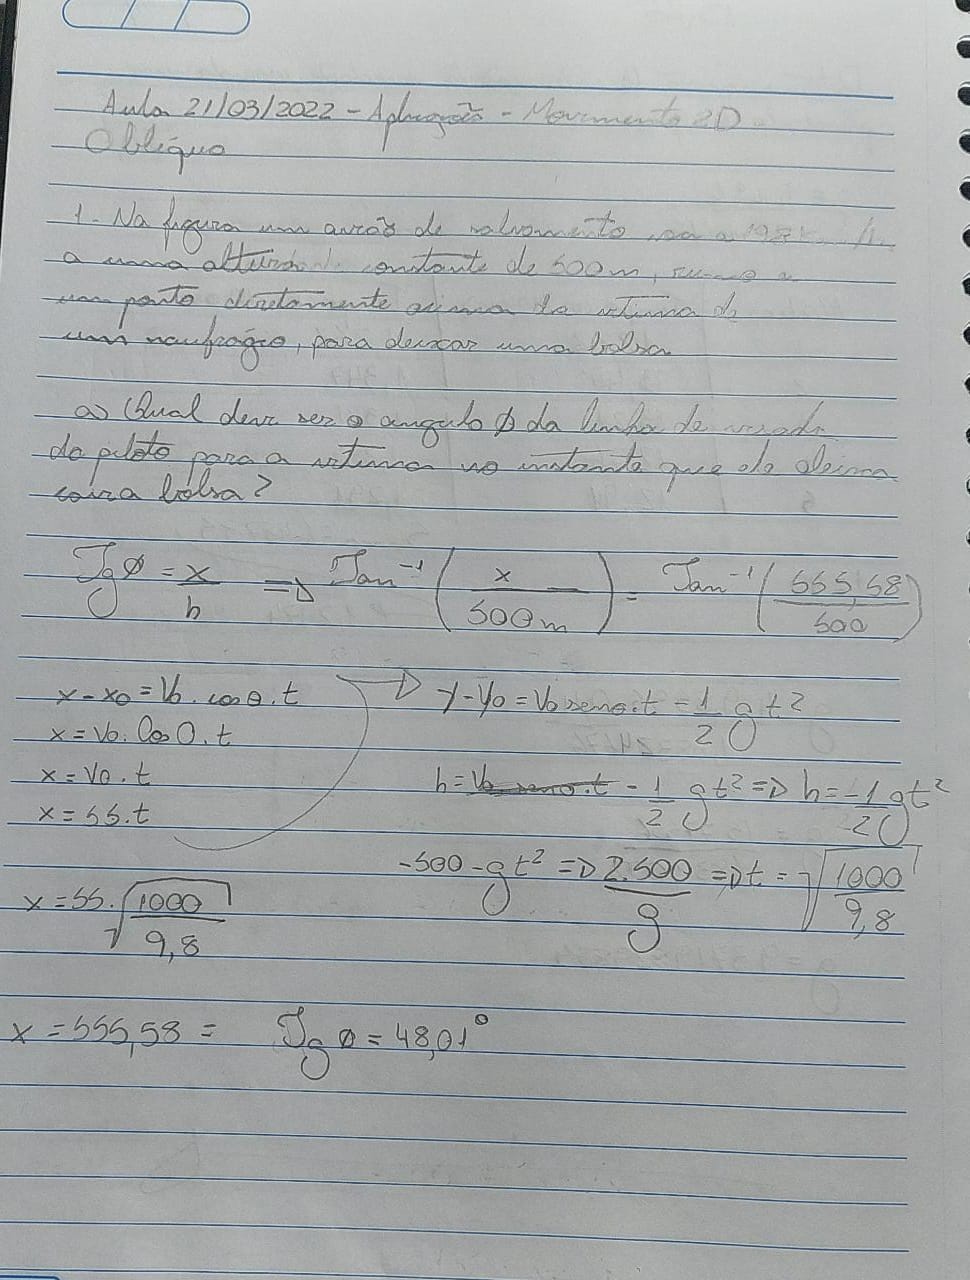 Aula 21/03/2022 - Aplicação - Movimento 2D
Oblíquo
1. Na figura um avião de salvamento voa a 198 k
a uma altura constante de 500m, rumo a
um ponto diretamente acima da vítima de
um naufrágio, para deixar uma bolsa
a) Qual deve ser o angulo Ø da linha de visada
do piloto para a vítima no instante que ele deixa
cair a bolsa?
Tg Ø = x/h => Tan⁻¹ (x/500m) = Tan⁻¹ (555,58/500)
x - x0 = V0 . cos θ . t → y - y0 = V0 seno . t = 1/2 g t²
x = V0 . Cos O . t
x = V0 . t h = V0 seno . t - 1/2 g t² => h = -1/2 g t²
x = 55 . t
-500 - g t² => 2.500/g => t = √1000/9,8
x = 55 . √1000/9,8
x = 555,58 = Tg Ø = 48,01°